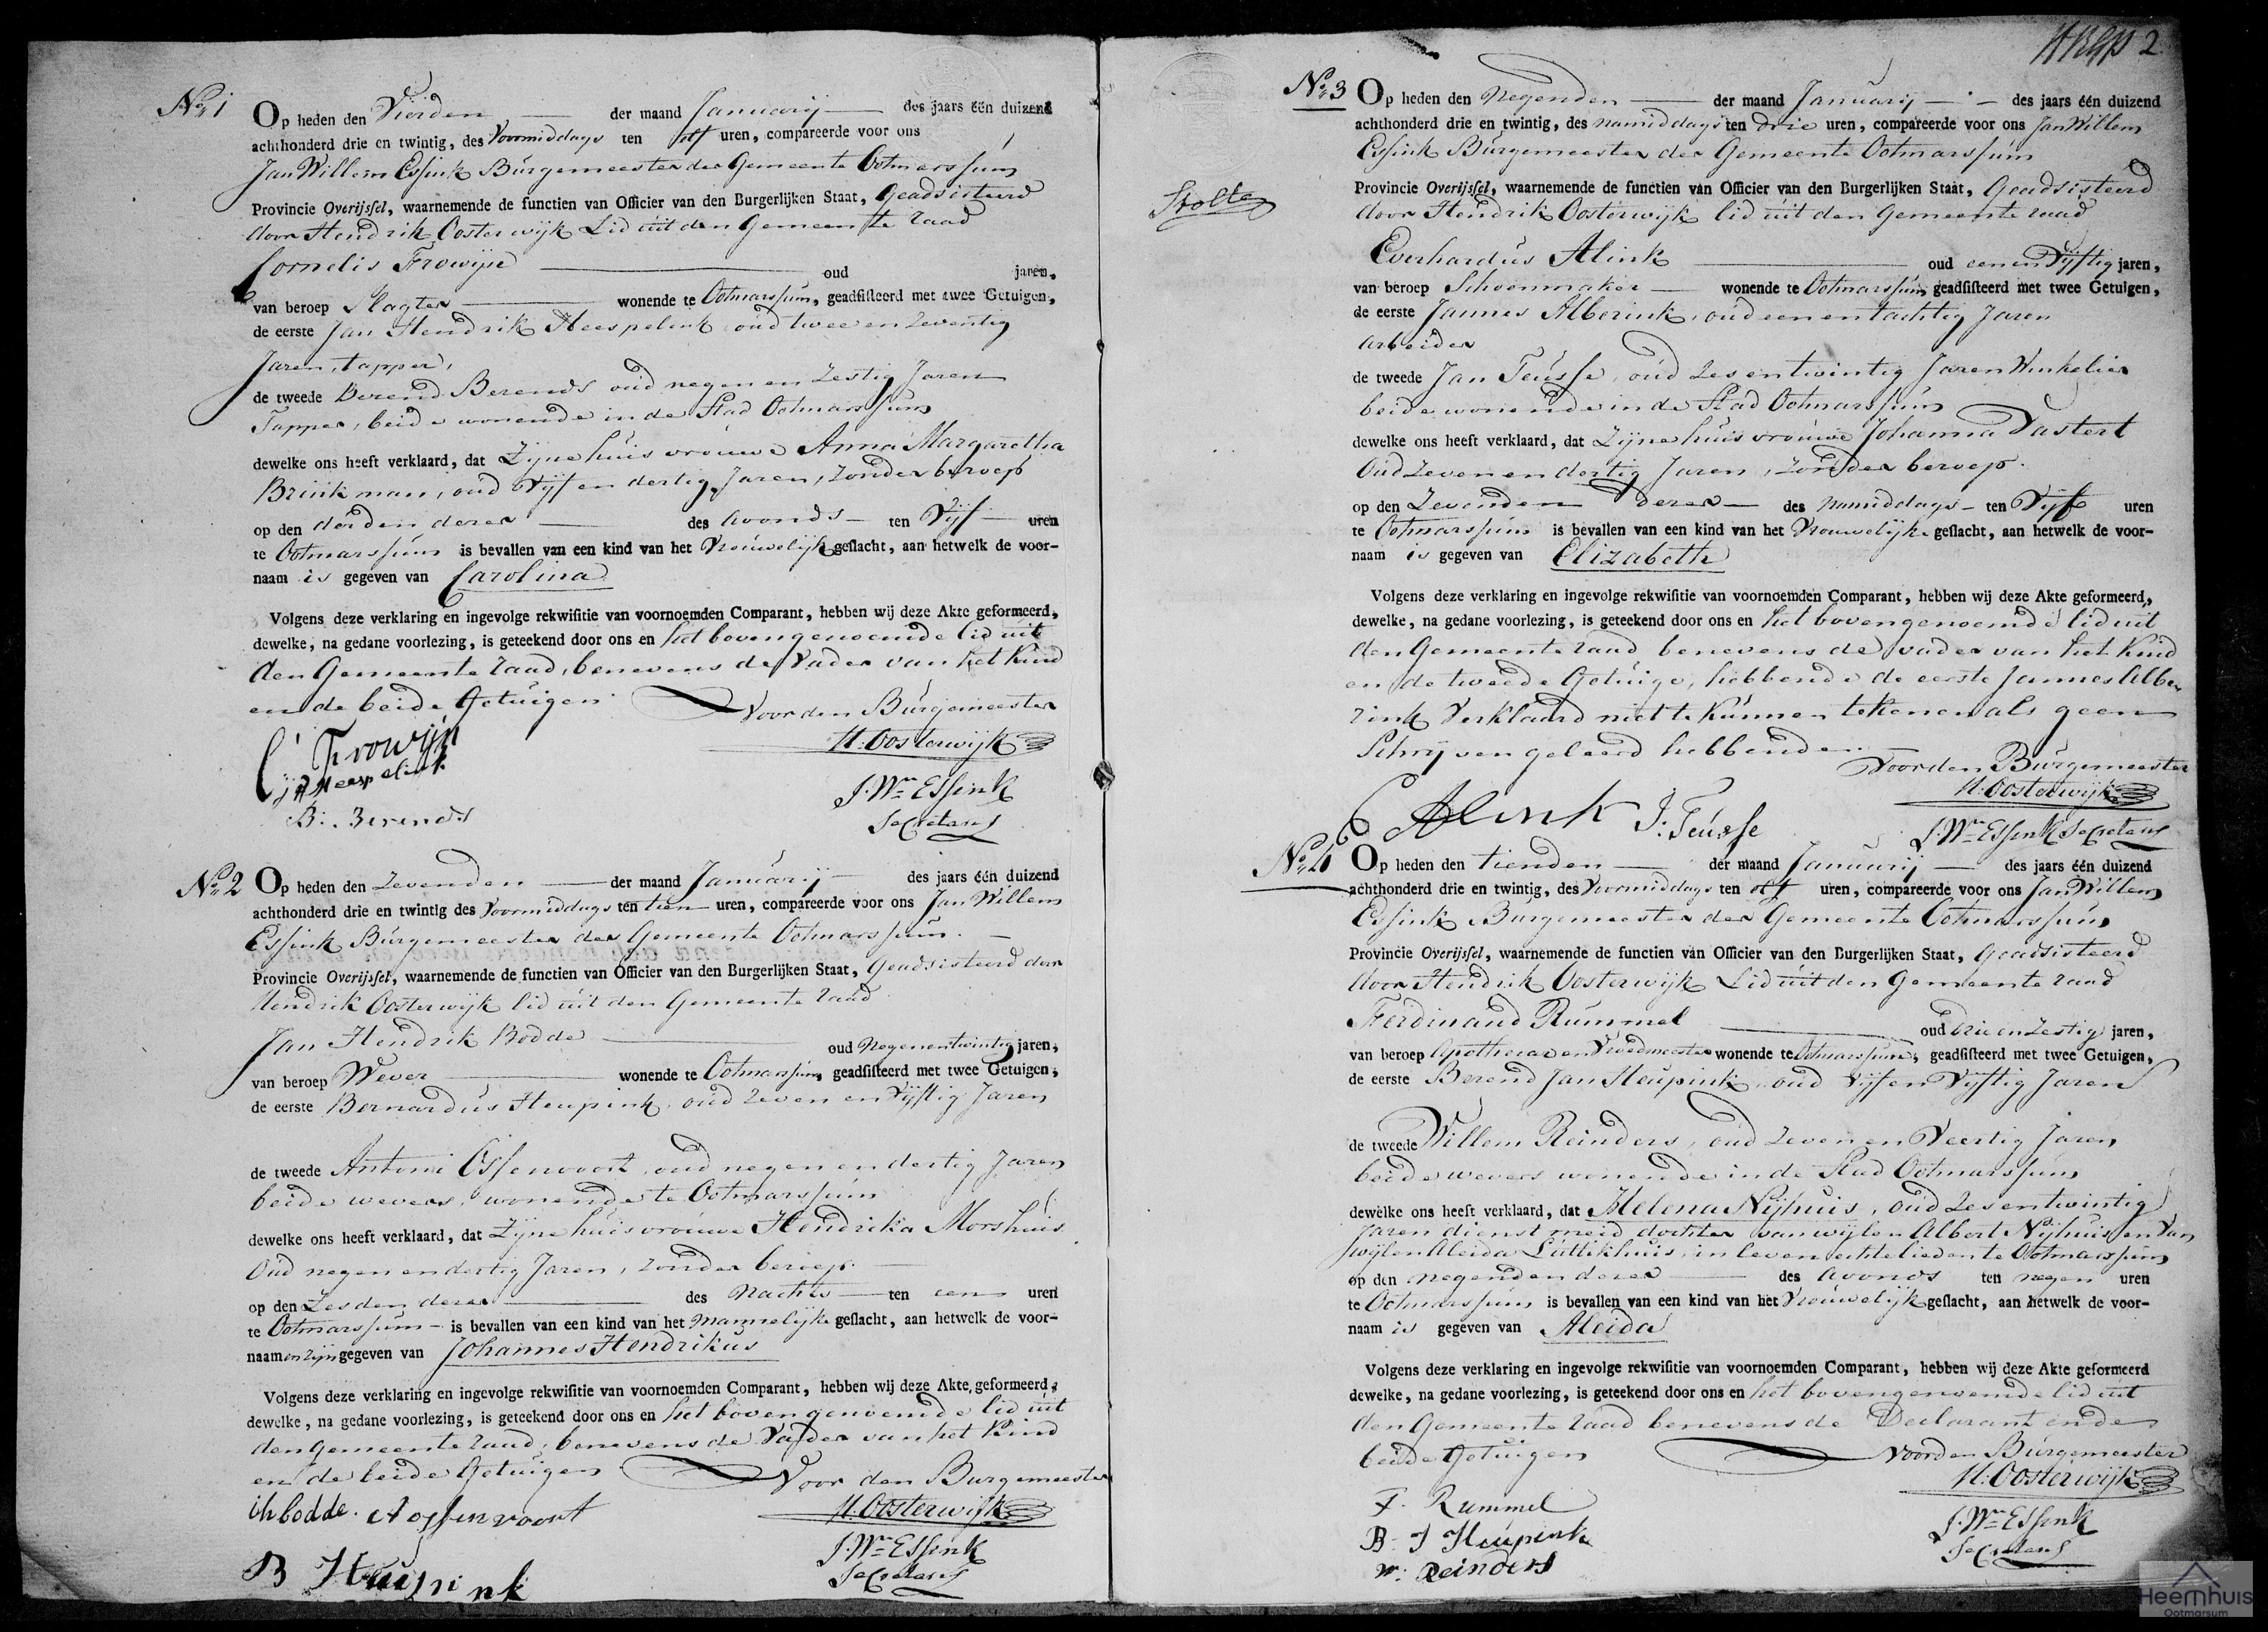 No. 1 Op heden den Vierden der maand Januarij des jaars één duizend
achthonderd drie en twintig, des Voormiddags ten elf uren, compareerde voor ons
Jan Willem Essink Burgemeester der Gemeente Ootmarssum
Provincie Overijssel, waarnemende de functien van Officier van den Burgerlijken Staat, Geadsisteerd
door Hendrik Oosterwijk Lid uit den Gemeente raad
Cornelis Frowijn oud jaren,
van beroep Slagter wonende te Ootmarssum, geadsisteerd met twee Getuigen,
de eerste Jan Hendrik Heespelink oud twee en Zeventig
Jaren, tapper,
de tweede Berend Berends oud negen en Zestig Jaren
Tapper, beide wonende in de Stad Ootmarssum
dewelke ons heeft verklaard, dat Zijne huisvrouwe Anna Margaretha
Brinkman, oud Vijf en dertig Jaren, Zonder beroep
op den derden dezer des avonds ten Vijf uren
te Ootmarssum is bevallen van een kind van het Vrouwelijk geslacht, aan hetwelk de voor-
naam is gegeven van Carolina
Volgens deze verklaring en ingevolge rekwisitie van voornoemden Comparant, hebben wij deze Akte geformeerd,
dewelke, na gedane voorlezing, is geteekend door ons en het bovengenoemde lid uit
den Gemeente raad, benevens de Vader van het Kind
en de beide Getuigen Voor den Burgemeester
H: Oosterwijk
C Frowijn
JH Heespelink
J. Wm Essink
B: Berends
Secretaris
No. 2 Op heden den Zevenden der maand Januarij des jaars één duizend
achthonderd drie en twintig des Voormiddags ten tien uren, compareerde voor ons Jan Willem
Essink Burgemeester der Gemeente Ootmarssum.
Provincie Overijssel, waarnemende de functien van Officier van den Burgerlijken Staat, Geadsisteerd door
Hendrik Oosterwijk lid uit den Gemeente raad
Jan Hendrik Bodde oud Negenentwintig jaren,
van beroep Wever wonende te Ootmarssum, geadsisteerd met twee Getuigen,
de eerste Bernardus Heupink, oud Zeven en Vijftig Jaren
de tweede Antoni Ossenvoort oud negen en dertig Jaren
beide wevers, wonende te Ootmarssum
dewelke ons heeft verklaard, dat Zijne huisvrouwe Hendrika Morshuis
Oud negen en dertig Jaren, Zonder beroep.
op den Zesden dezer des Nachts ten een uren
te Ootmarssum is bevallen van een kind van het Mannelijke geslacht, aan hetwelk de voor-
naamen zijn gegeven van Johannes Hendrikus
Volgens deze verklaring en ingevolge rekwisitie van voornoemden Comparant, hebben wij deze Akte geformeerd,
dewelke, na gedane voorlezing, is geteekend door ons en het bovengenoemde lid uit
den Gemeente raad, benevens de Vader van het Kind
en de beide Getuigen Voor den Burgemeester
ih bodde. A ossenvoort H: Oosterwijk
B Heupink
J. Wm Essink
Secretaris
2
No. 3 Op heden den Negenden der maand Januarij des jaars één duizend
achthonderd drie en twintig, des namiddags ten drie uren, compareerde voor ons Jan Willem
Essink Burgemeester der Gemeente Ootmarssum
Provincie Overijssel, waarnemende de functien van Officier van den Burgerlijken Staat, Geadsisteerd
Stolte
door Hendrik Oosterwijk lid uit den Gemeente raad
Everhardus Alink oud een en Vijftig jaren,
van beroep Schoenmaker wonende te Ootmarssum, geadsisteerd met twee Getuigen,
de eerste Jannes Alberink, oud een en tachtig Jaren
arbeider
de tweede Jan Teusse, oud Zes entwintig Jaren Winkelier
beide wonende in de Stad Ootmarssum
dewelke ons heeft verklaard, dat Zijne huisvrouwe Johanna Vastert
Oud Zeven en dertig Jaren, Zonder beroep.
op den Zevenden dezer des namiddags ten Vijf uren
te Ootmarssum is bevallen van een kind van het Vrouwelijke geslacht, aan hetwelk de voor-
naam is gegeven van Elizabeth
Volgens deze verklaring en ingevolge rekwisitie van voornoemden Comparant, hebben wij deze Akte geformeerd,
dewelke, na gedane voorlezing, is geteekend door ons en het bovengenoemde lid uit
den Gemeente raad benevens de vader van het Kind
en de tweede Getuige, hebbende de eerste Jannes Albe
rink Verklaard niet te Kunnen tekenen als geen
Schrijven geleerd hebbende. Voor den Burgemeester
H: Oosterwijk
E Alink J: Teusse J. Wm Essink Secretaris
No. 4 Op heden den tienden der maand Januarij des jaars één duizend
achthonderd drie en twintig, des Voormiddags ten elf uren, compareerde voor ons Jan Willem
Essink Burgemeester der Gemeente Ootmarssum
Provincie Overijssel, waarnemende de functien van Officier van den Burgerlijken Staat, Geadsisteerd
door Hendrik Oosterwijk Lid uit den Gemeente raad
Ferdinand Rummel oud drie en Zestig jaren,
van beroep Apothecar en Vroedmeester wonende te Ootmarssum, geadsisteerd met twee Getuigen,
de eerste Berend Jan Heupink, oud Vijf en Vijftig Jaren
de tweede Willem Reinders, oud Zeven en Veertig Jaren
beide wevers wonende in de Stad Ootmarssum
dewelke ons heeft verklaard, dat Helena Nijhuis, oud Zes entwintig
Jaren dienstmeid dochter van wijlen Albert Nijhuis en van
wijlen Aleida Luttikhuis, in leven echtelieden te Ootmarssum
op den negenden dezer des avonds ten negen uren
te Ootmarssum is bevallen van een kind van het Vrouwelijk geslacht, aan hetwelk de voor-
naam is gegeven van Aleida
Volgens deze verklaring en ingevolge rekwisitie van voornoemden Comparant, hebben wij deze Akte geformeerd
dewelke, na gedane voorlezing, is geteekend door ons en het bovengenoemde lid uit
den Gemeente raad benevens de Declarant en de
beide Getuigen Voor den Burgemeester
H: Oosterwijk
F. Rummel
B. J Heupink
W: Reinders
J. Wm Essink
Secretaris
Heemhuis
Ootmarsum